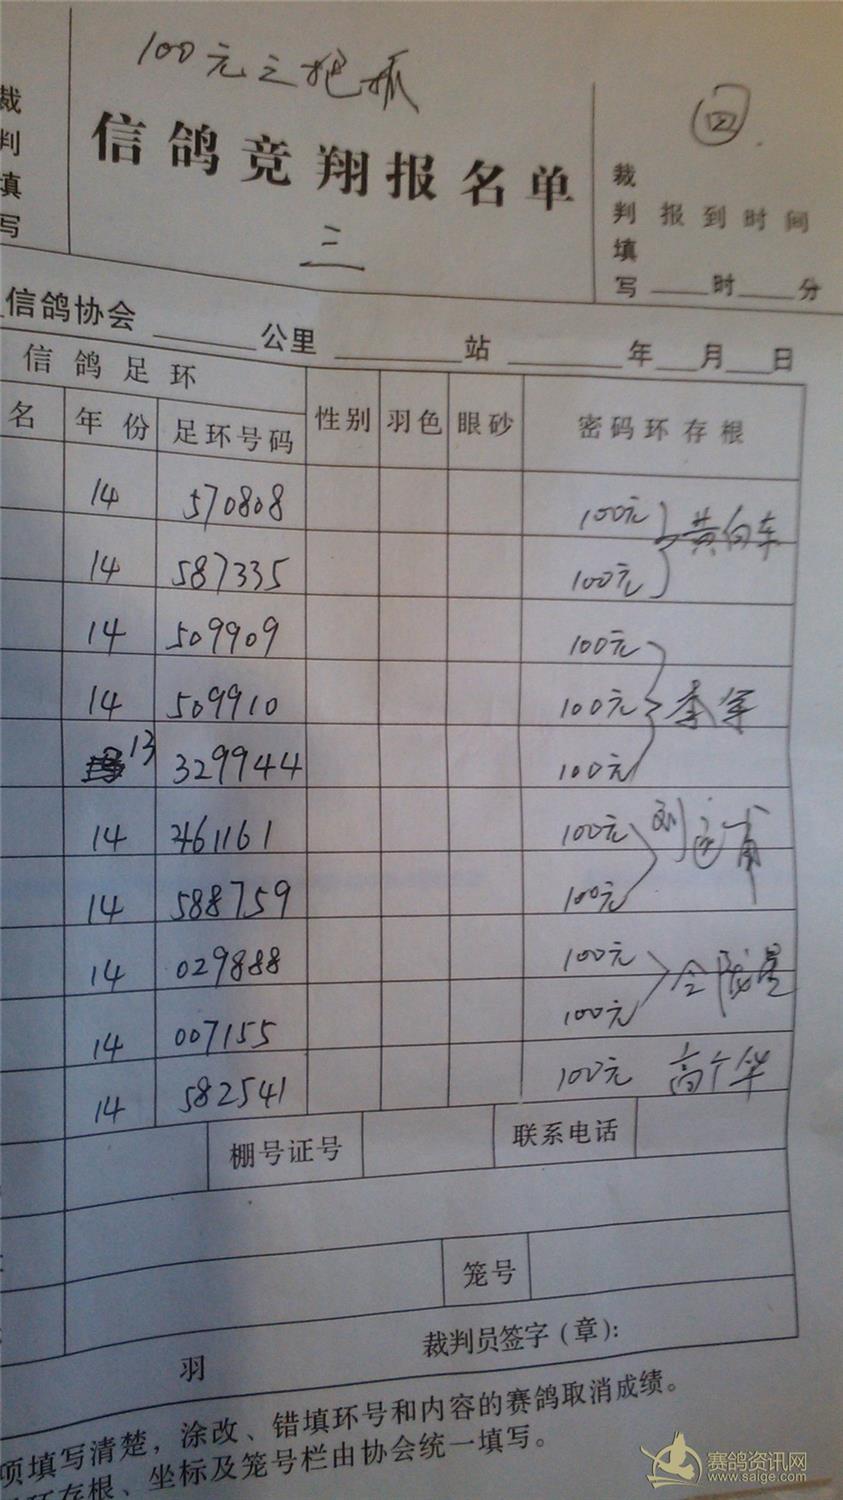 100元之把抓
裁判填写
信鸽竞翔报名单
三
四
裁判填写
报到时间
时 分
信鸽协会 公里 站 年 月 日
信鸽足环
名 年份 足环号码 性别 羽色 眼砂 密码环存根
14 570808 100元
14 587335 100元
14 509909 100元
14 509910 100元 李军
13 329944 100元
14 461161 100元
14 588759 100元
14 029888 100元
14 007155 100元
14 582541 100元
棚号证号 联系电话
笼号
羽 裁判员签字(章):
项填写清楚，涂改、错填环号和内容的赛鸽取消成绩。
环存根、坐标及笼号栏由协会统一填写。
赛鸽资讯网
www.saige.com